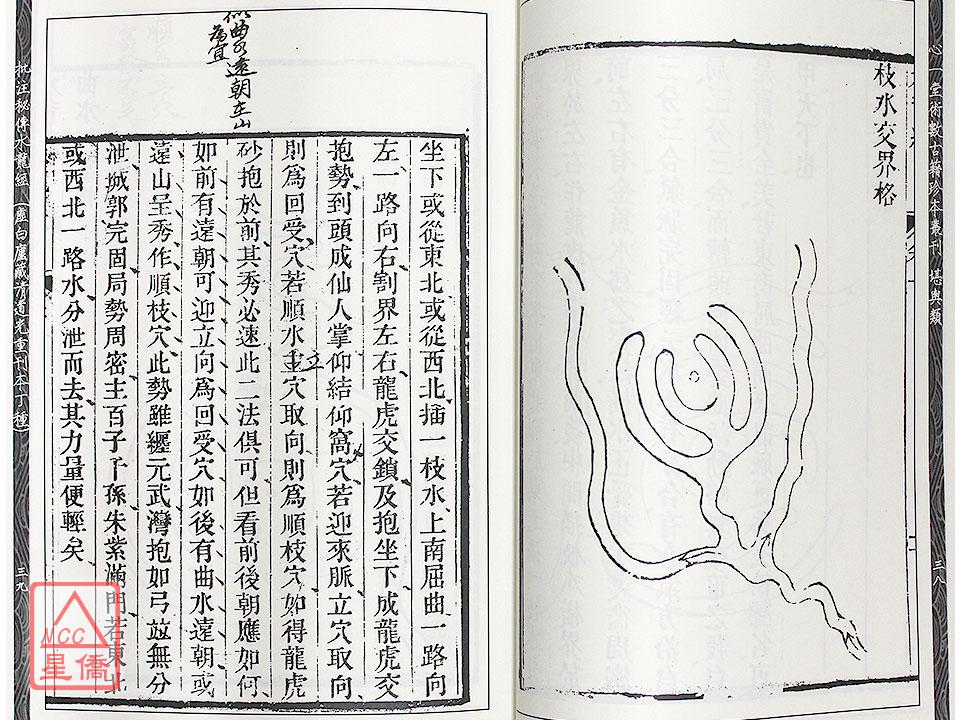 心一堂術數古籍珍本叢刊 堪輿類
枝水交界格
三八
似曲水遠朝在山
為宜
坐下或從東北或從西北插一枝水上南屈曲一路向
左一路向右割界左右龍虎交鎖及抱坐下成龍虎交
抱勢到頭成仙人掌仰結仰窩穴若迎來脈立穴取向
則為回受穴若順水立穴取向則為順枝穴如得龍虎
砂抱於前其秀必速此二法俱可但看前後朝應如何
如前有遠朝可迎立向為回受穴如後有曲水遠朝或
遠山呈秀作順枝穴此勢雖纏元武灣抱如弓並無分
泄城郭完固局勢周密主百子千孫朱紫滿門若東北
或西北一路水分泄而去其力量便輕矣
批注秘傳水龍經(虛白廬藏清道光重刊本丁種)
三九
NCC
星僑